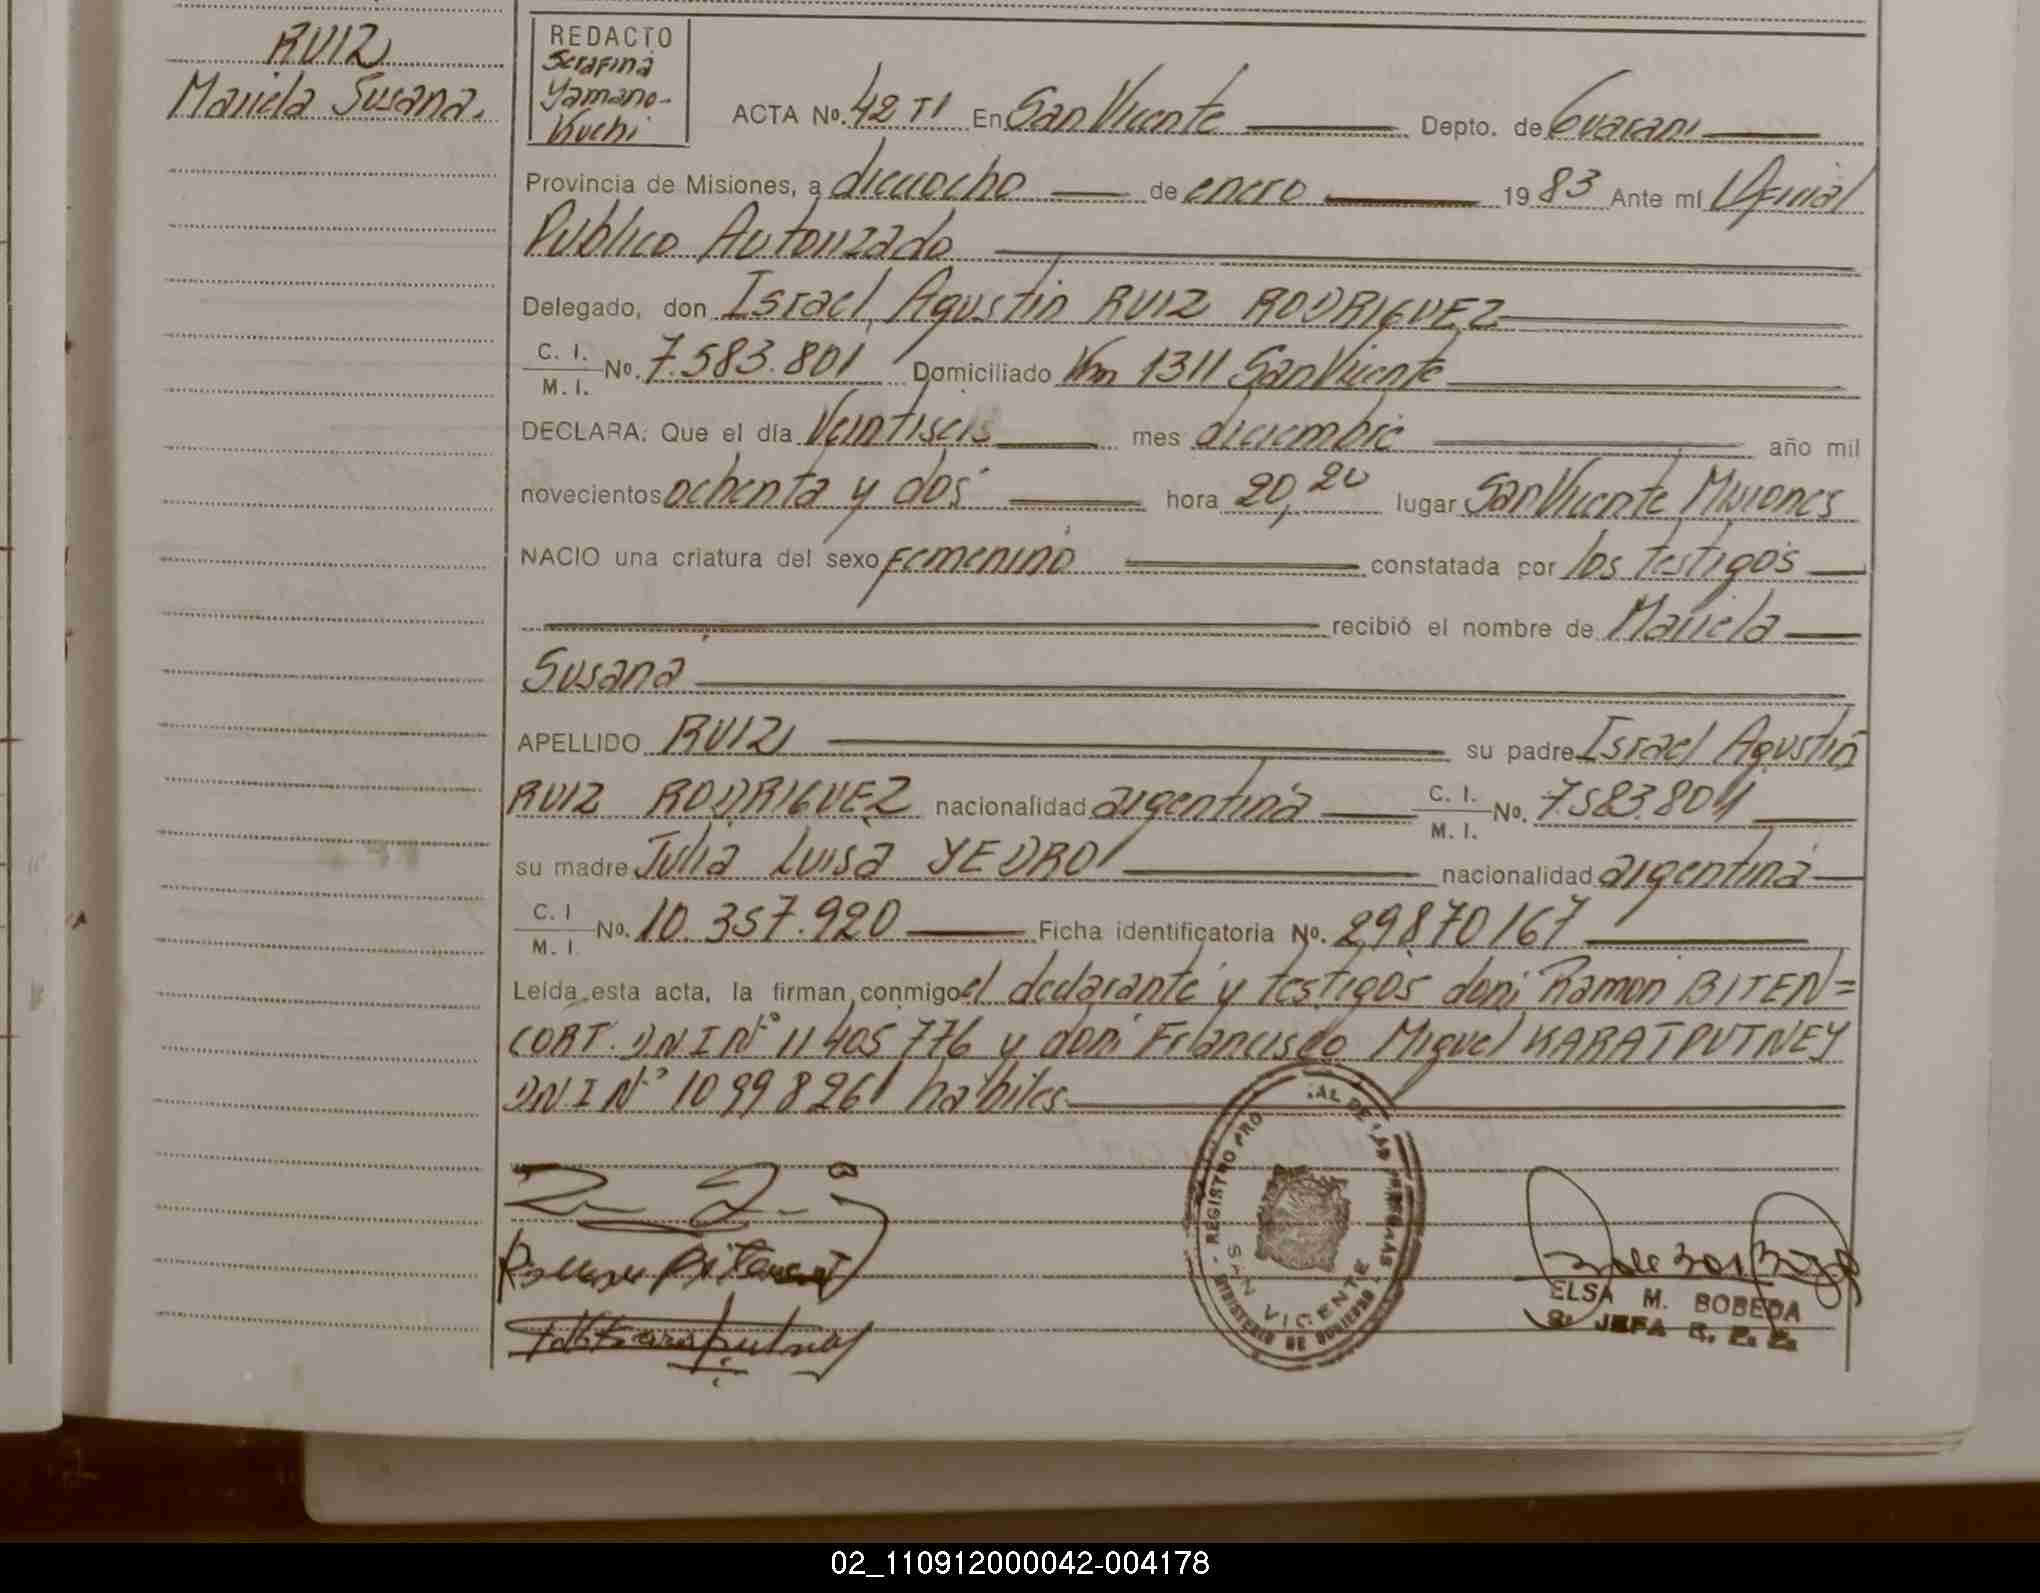 RUIZ
Mariela Susana.
REDACTO
Serafina
Yamano-
Kuchi
ACTA No. 42 TI En San Vicente Depto. de Guarani
Provincia de Misiones, a dieciocho de enero 1983 Ante mí Oficial
Publico Autorizado
Delegado, don Israel Agustin RUIZ RODRIGUEZ
C. I.
M. I. No. 7.583.801 Domiciliado Km 1311 San Vicente
DECLARA: Que el día Veintiseis mes diciembre año mil
novecientos ochenta y dos hora 20,20 lugar San Vicente Misiones
NACIO una criatura del sexo femenino constatada por los testigos
recibió el nombre de Mariela
Susana
APELLIDO RUIZ su padre Israel Agustin
RUIZ RODRIGUEZ nacionalidad argentina C. I.
M. I. No. 7.583.801
su madre Julia Luisa YEDRO nacionalidad argentina
C. I
M. I. No. 10.357.920 Ficha identificatoria No. 29870167
Leída esta acta, la firman conmigo el declarante y testigos don: Ramon BITEN=
CORT. DNI N° 11405776 y don: Francisco Miguel KARATPUTNEY
DNI N° 10998261 habiles
REGISTRO PRO AL DE LAS PERSONAS
SAN VICENTE
MINISTERIO DE GOBIERNO
Ramon Bitencort
ELSA M. BOBEDA
JEFA R. P. P.
02_110912000042-004178